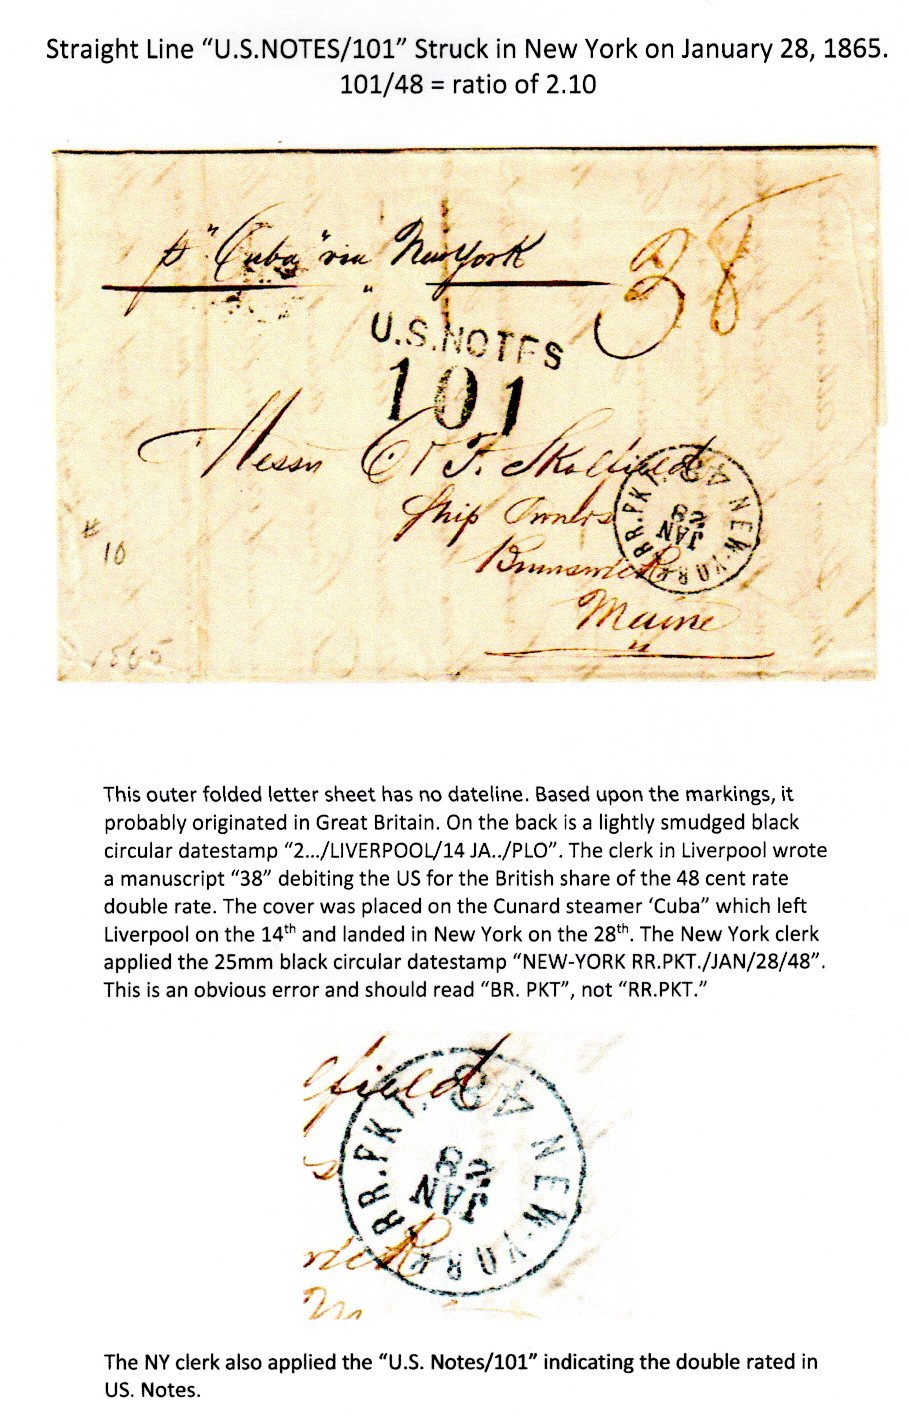 Straight Line “U.S.NOTES/101” Struck in New York on January 28, 1865.
101/48 = ratio of 2.10
p "Cuba" via New York
38
U.S.NOTES
101
Messrs
Skolfield
Ship Owners
Brunswick
Maine
NEW-YORK RR.PKT. 48
JAN
28
#
10
1865
This outer folded letter sheet has no dateline. Based upon the markings, it
probably originated in Great Britain. On the back is a lightly smudged black
circular datestamp “2.../LIVERPOOL/14 JA../PLO”. The clerk in Liverpool wrote
a manuscript “38” debiting the US for the British share of the 48 cent rate
double rate. The cover was placed on the Cunard steamer ‘Cuba” which left
Liverpool on the 14th and landed in New York on the 28th. The New York clerk
applied the 25mm black circular datestamp “NEW-YORK RR.PKT./JAN/28/48”.
This is an obvious error and should read “BR. PKT”, not “RR.PKT.”
lfield
s
wick
M
NEW-YORK RR.PKT. 48
JAN
28
The NY clerk also applied the “U.S. Notes/101” indicating the double rated in
US. Notes.